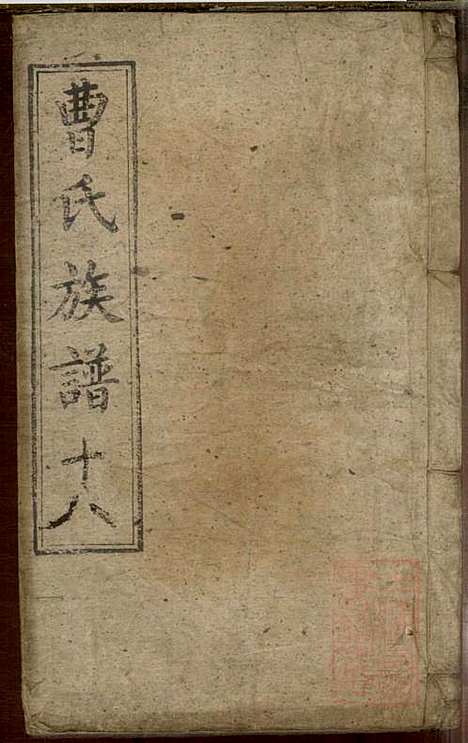 曹氏族譜十八